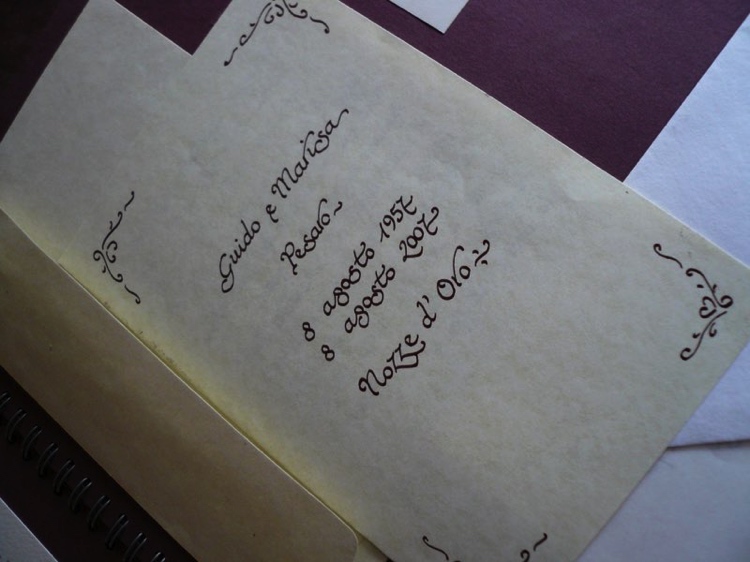 Guido e Marisa
Pesaro
8 agosto 1957
8 agosto 2007
Nozze d' Oro